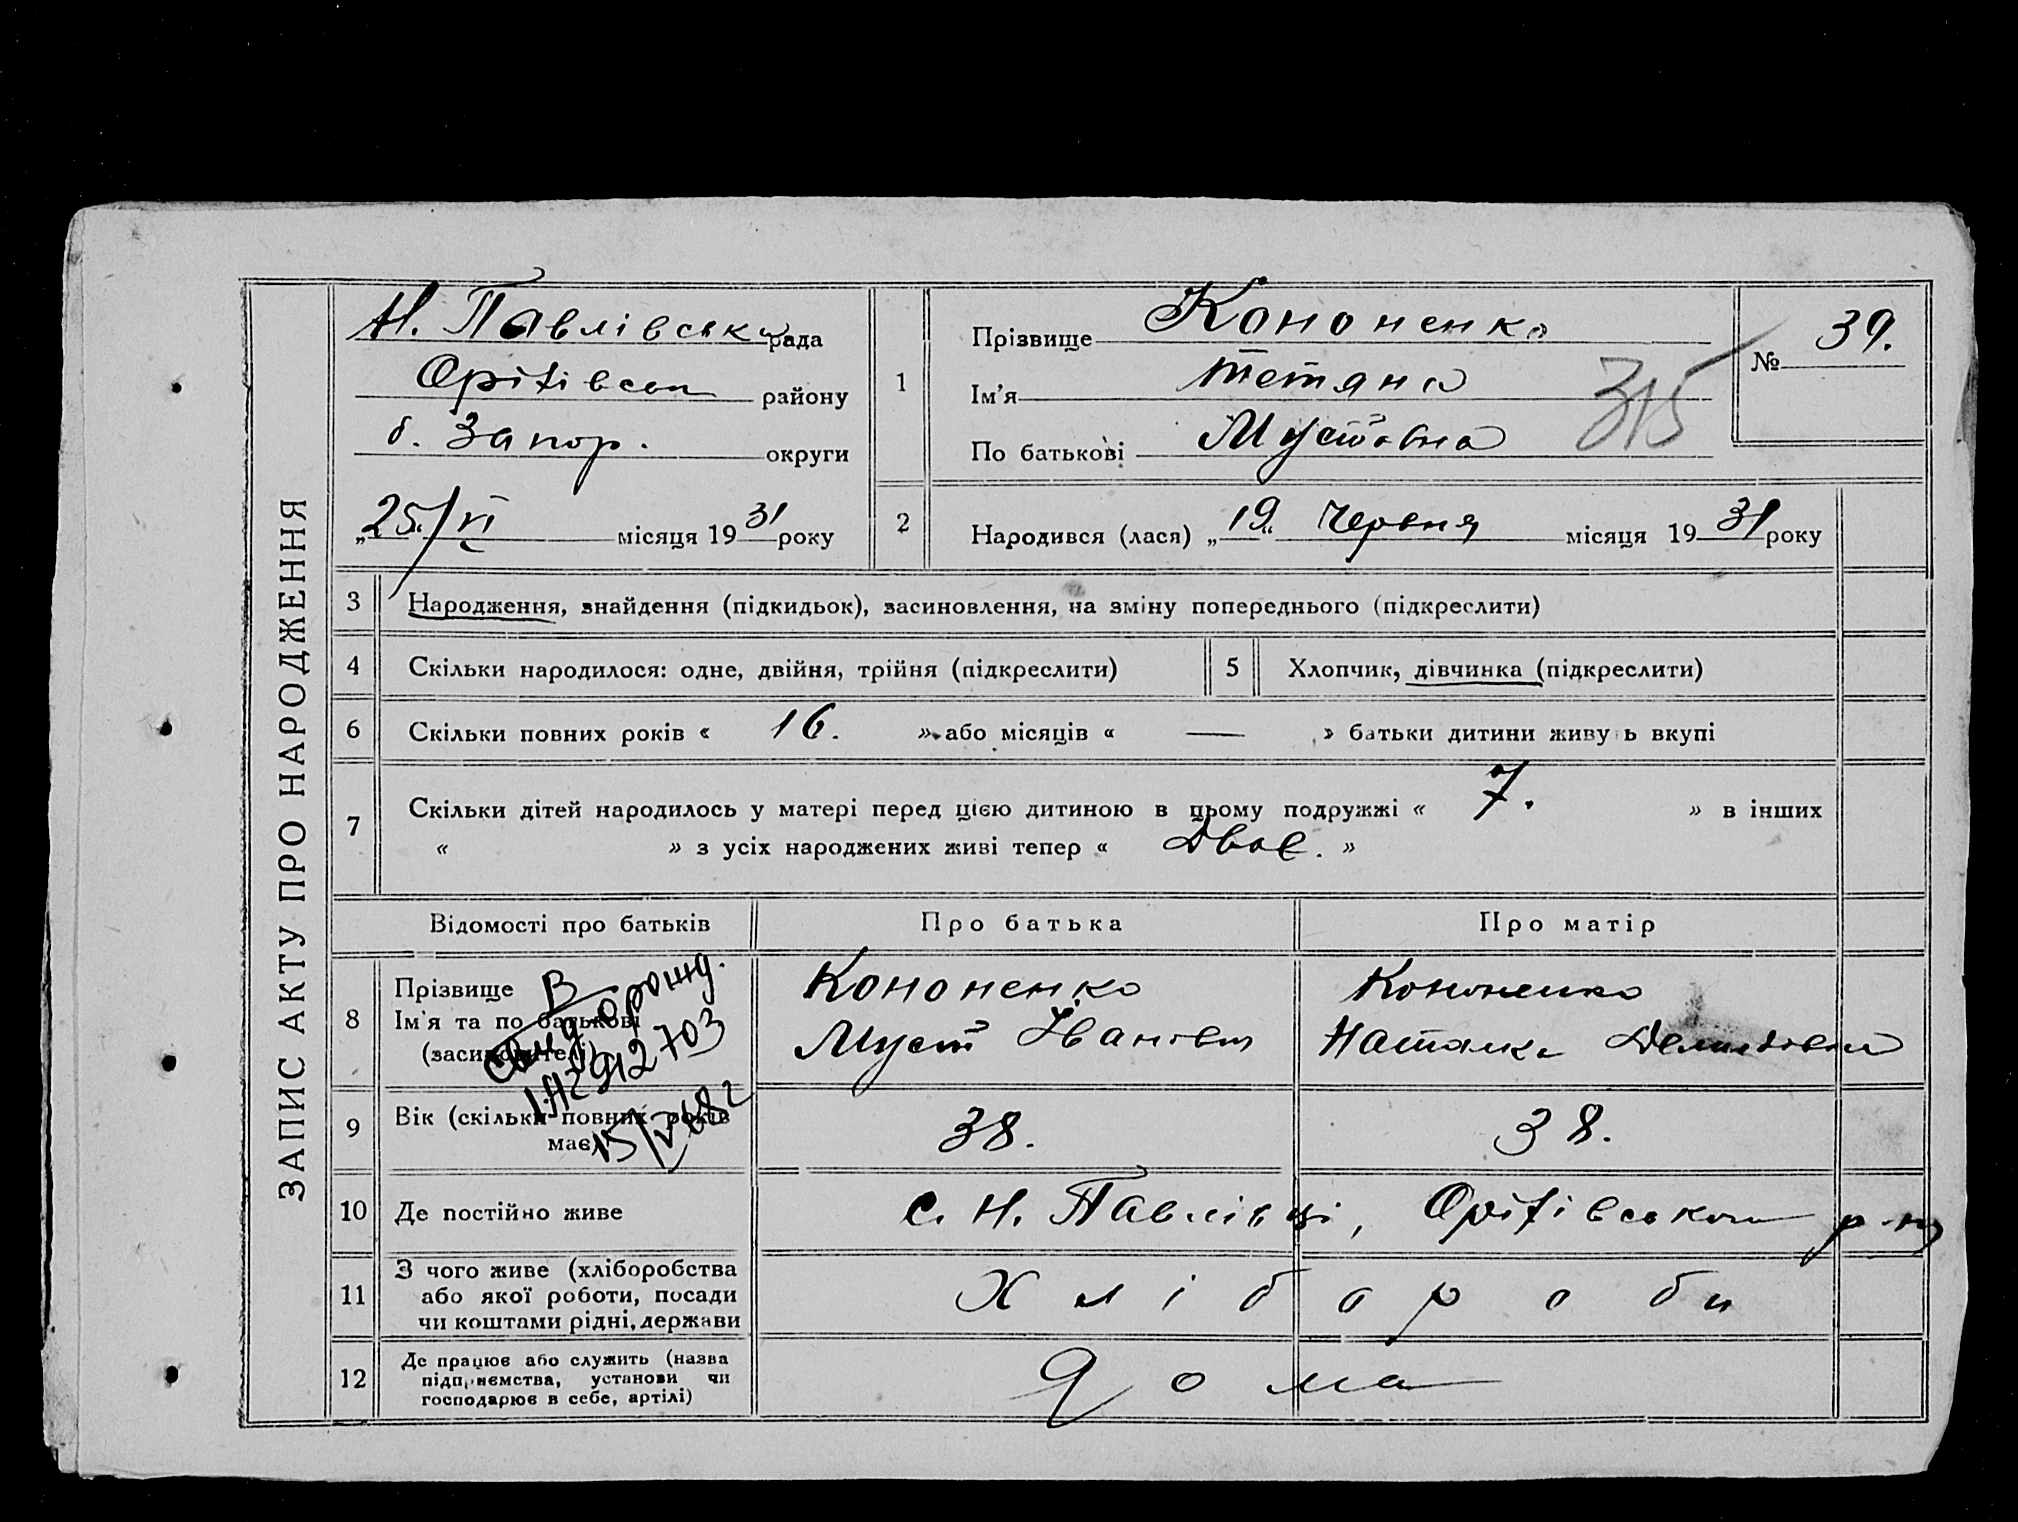 ЗАПИС АКТУ ПРО НАРОДЖЕННЯ
Н. Павлівська рада
Оріхівськ району
б. Запор. округи
„25“/VI місяця 1931 року
1
Прізвище Кононенко
Ім'я Тетяна
По батькові Мустовна
315
№ 39.
2
Народився (лася) „19“ Червня місяця 1931 року
3 Народження, знайдення (підкидьок), засиновлення, на зміну попереднього (підкреслити)
4 Скільки народилося: одне, двійня, трійня (підкреслити)
5 Хлопчик, дівчинка (підкреслити)
6 Скільки повних років « 16. » або місяців « — » батьки дитини живу ь вкупі
7 Скільки дітей народилось у матері перед цією дитиною в цьому подружжі « 7. » в інших
« » з усіх народжених живі тепер « Двоє. »
Відомості про батьків
Про батька
Про матір
8 Прізвище
Ім'я та по батькові
(засиновителі)
Кононенко
Муст Іванович
Кононенко
Наталка
В
939 912703
15/V 68 г
9 Вік (скільки повних років
має)
38.
38.
10 Де постійно живе
с. Н. Павлівці, Оріхівського р-ну
11 З чого живе (хліборобства
або якої роботи, посади
чи коштами рідні, держави
Хлібороби
12 Де працює або служить (назва
підприємства, установи чи
господарює в себе, артілі)
дома